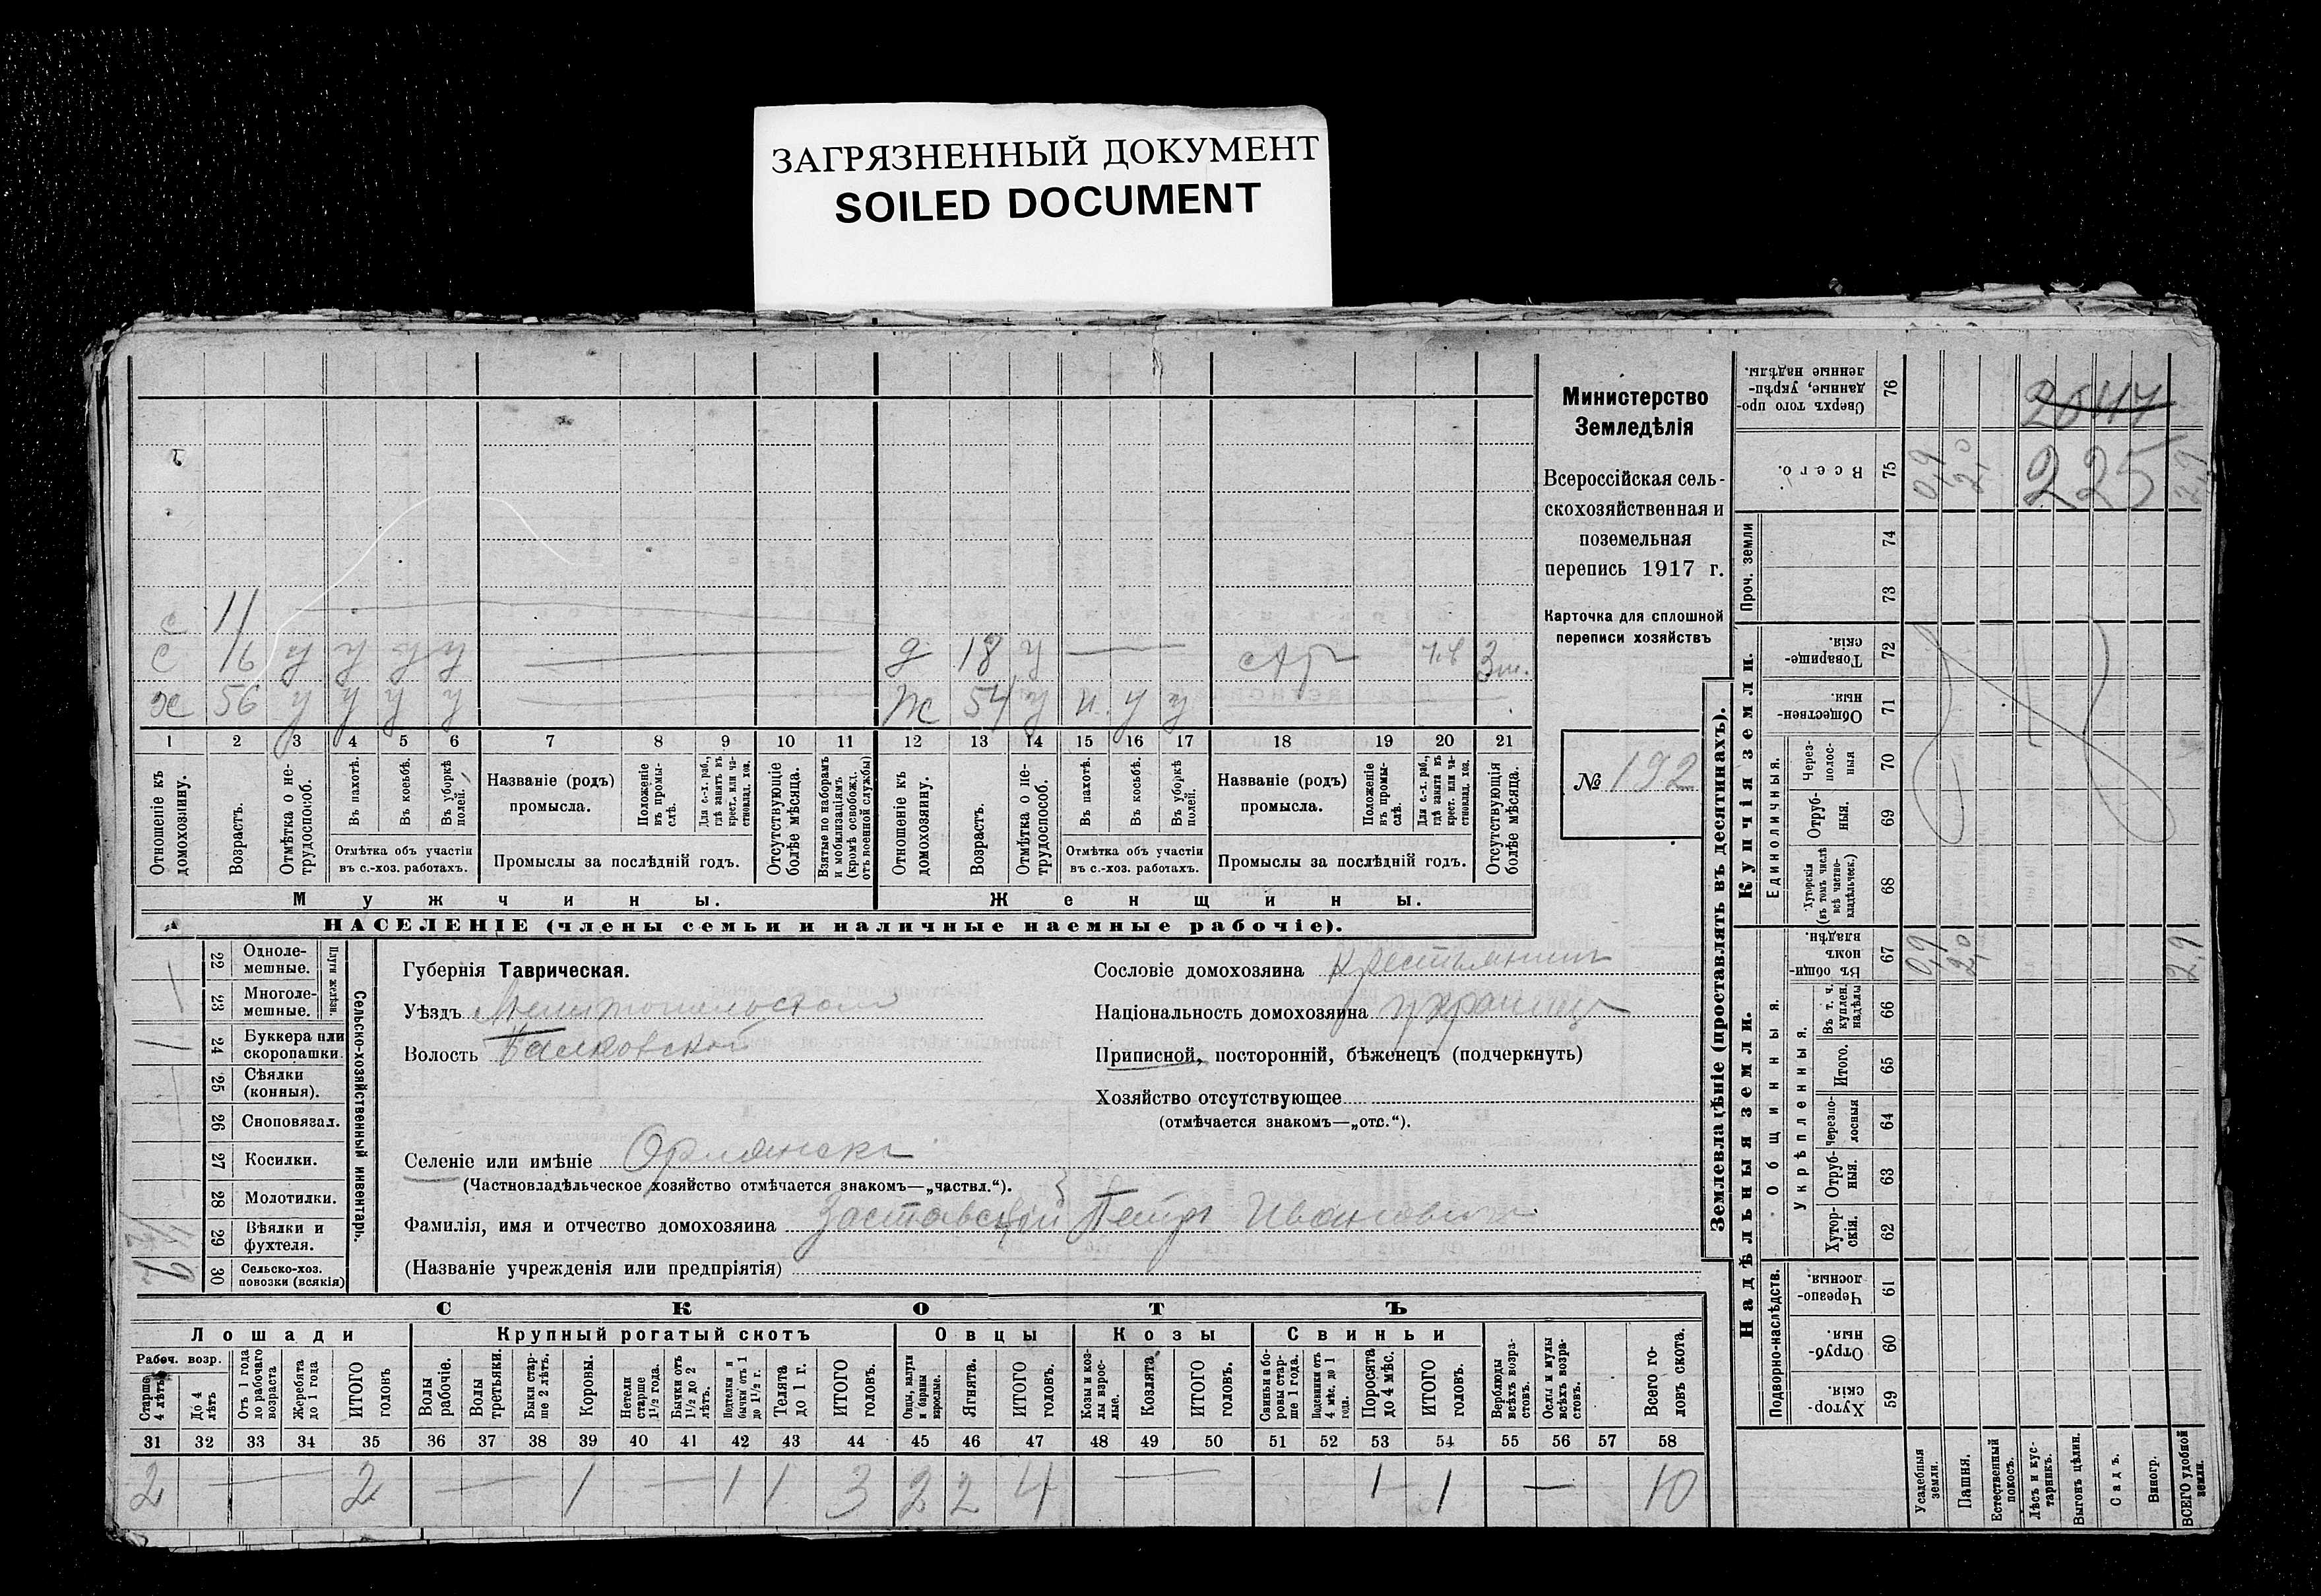 ЗАГРЯЗНЕННЫЙ ДОКУМЕНТ
SOILED DOCUMENT
Министерство
Земледѣлія
Всероссійская сель-
скохозяйственная и
поземельная
перепись 1917 г.
Карточка для сплошной
переписи хозяйствъ
№ 192
с 11
с 16 у у у у
д 18 у
х 56 у у у у
ж 54 у н. у у
1 2 3 4 5 6 7 8 9 10 11 12 13 14 15 16 17 18 19 20 21
Отношеніе къ домохозяину.
Возрастъ.
Отмѣтка о не-трудоспособ.
Въ пахотѣ.
Въ косьбѣ.
Въ уборкѣ полей.
Отмѣтка объ участіи
въ с.-хоз. работахъ.
Названіе (родъ)
промысла.
Положеніе въ промы-слѣ.
Для с.-х. раб., гдѣ занятъ въ крест. или ча-стновлад. хоз.
Промыслы за послѣдній годъ.
Отсутствующіе болѣе мѣсяца.
Взятые по наборамъ и мобилизаціямъ (кромѣ освобожд. отъ военной службы)
Отношеніе къ домохозяину.
Возрастъ.
Отмѣтка о не-трудоспособ.
Въ пахотѣ.
Въ косьбѣ.
Въ уборкѣ полей.
Отмѣтка объ участіи
въ с.-хоз. работахъ.
Названіе (родъ)
промысла.
Положеніе въ промы-слѣ.
Для с.-х. раб., гдѣ занятъ въ крест. или ча-стновлад. хоз.
Промыслы за послѣдній годъ.
Отсутствующія болѣе мѣсяца.
Мужчины.
Женщины.
НАСЕЛЕНІЕ (члены семьи и наличные наемные рабочіе).
22 Одноле-мешные.
23 Многоле-мешные.
Плуги желѣзн.
1 24 Буккера или скоропашки.
25 Сѣялки (конныя).
26 Сноповязал.
27 Косилки.
28 Молотилки.
29 Вѣялки и фухтеля.
30 Сельско-хоз. повозки (всякія)
Сельско-хозяйственный инвентарь.
Губернія Таврическая.
Уѣздъ Мелитопольской
Волость Балковской
Селеніе или имѣніе Орлянскъ
(Частновладѣльческое хозяйство отмѣчается знакомъ—„частвл.“).
Фамилія, имя и отчество домохозяина Заставской Петръ Ивановичъ
(Названіе учрежденія или предпріятія)
Сословіе домохозяина Крестьянинъ
Національность домохозяина украинец
Приписной, посторонній, бѣженецъ (подчеркнуть)
Хозяйство отсутствующее
(отмѣчается знакомъ—„отс.“).
СКОТЪ
Лошади
Крупный рогатый скотъ
Овцы
Козы
Свиньи
Рабоч. возр.
Старше 4 лѣтъ
До 4 лѣтъ
Отъ 1 года до рабочаго возраста
Жеребята до 1 года
ИТОГО головъ
Волы рабочіе.
Волы третьяки.
Быки стар-ше 2 лѣтъ.
Коровы.
Нетели старше 1½ года.
Бычки отъ 1½ до 2 лѣтъ.
Подтелки и бычки отъ 1 до 1½ г.
Телята до 1 г.
ИТОГО головъ.
Овцы, валухи и бараны взрослые.
Ягнята.
ИТОГО головъ.
Козы и коз-лы взрос-лые.
Козлята.
ИТОГО головъ.
Свиньи и бо-ровы стар-ше 1 года.
Подсвинки отъ 4 мѣс. до 1 года.
Поросята до 4 мѣс.
ИТОГО головъ.
Верблюды всѣхъ возра-стовъ.
Ослы и мулы всѣхъ возра-стовъ.
Всего го-ловъ скота.
31 32 33 34 35 36 37 38 39 40 41 42 43 44 45 46 47 48 49 50 51 52 53 54 55 56 57 58
2 — 2 — 1 — 1 1 3 2 2 4 — 1 1 — 10
Землевладѣніе (проставлять въ десятинахъ).
Надѣльныя земли.
Купчія земли.
Проч. земли
Подворно-наслѣдств.
Общинныя.
Укрѣпленныя.
Единоличныя.
Сверхъ того про-данные, укрѣп-ленные надѣлы. 76
2647
Всего. 75 0,9 2,0 2,9
225
74
73
Товарище-скія. 72
Обществен-ныя 71
Через-полос-ныя 70
Отруб-ныя. 69
Хуторскія (въ томъ числѣ всѣ частно-владѣльческ.) 68
Въ общин-номъ владѣн. 67 0,9 2,0 2,9
Въ т. ч. куплен. надѣлы 66
Итого. 65
Черезпо-лосныя 64
Отруб-ныя. 63
Хутор-скія. 62
Черезпо-лосныя. 61
Отруб-ныя. 60
Хутор-скія. 59
Усадебныя земли.
Пашня.
Естественный покосъ.
Лѣсъ и кус-тарникъ.
Выгонъ цѣлин.
Садъ.
Виногр.
ВСЕГО удобной земли.